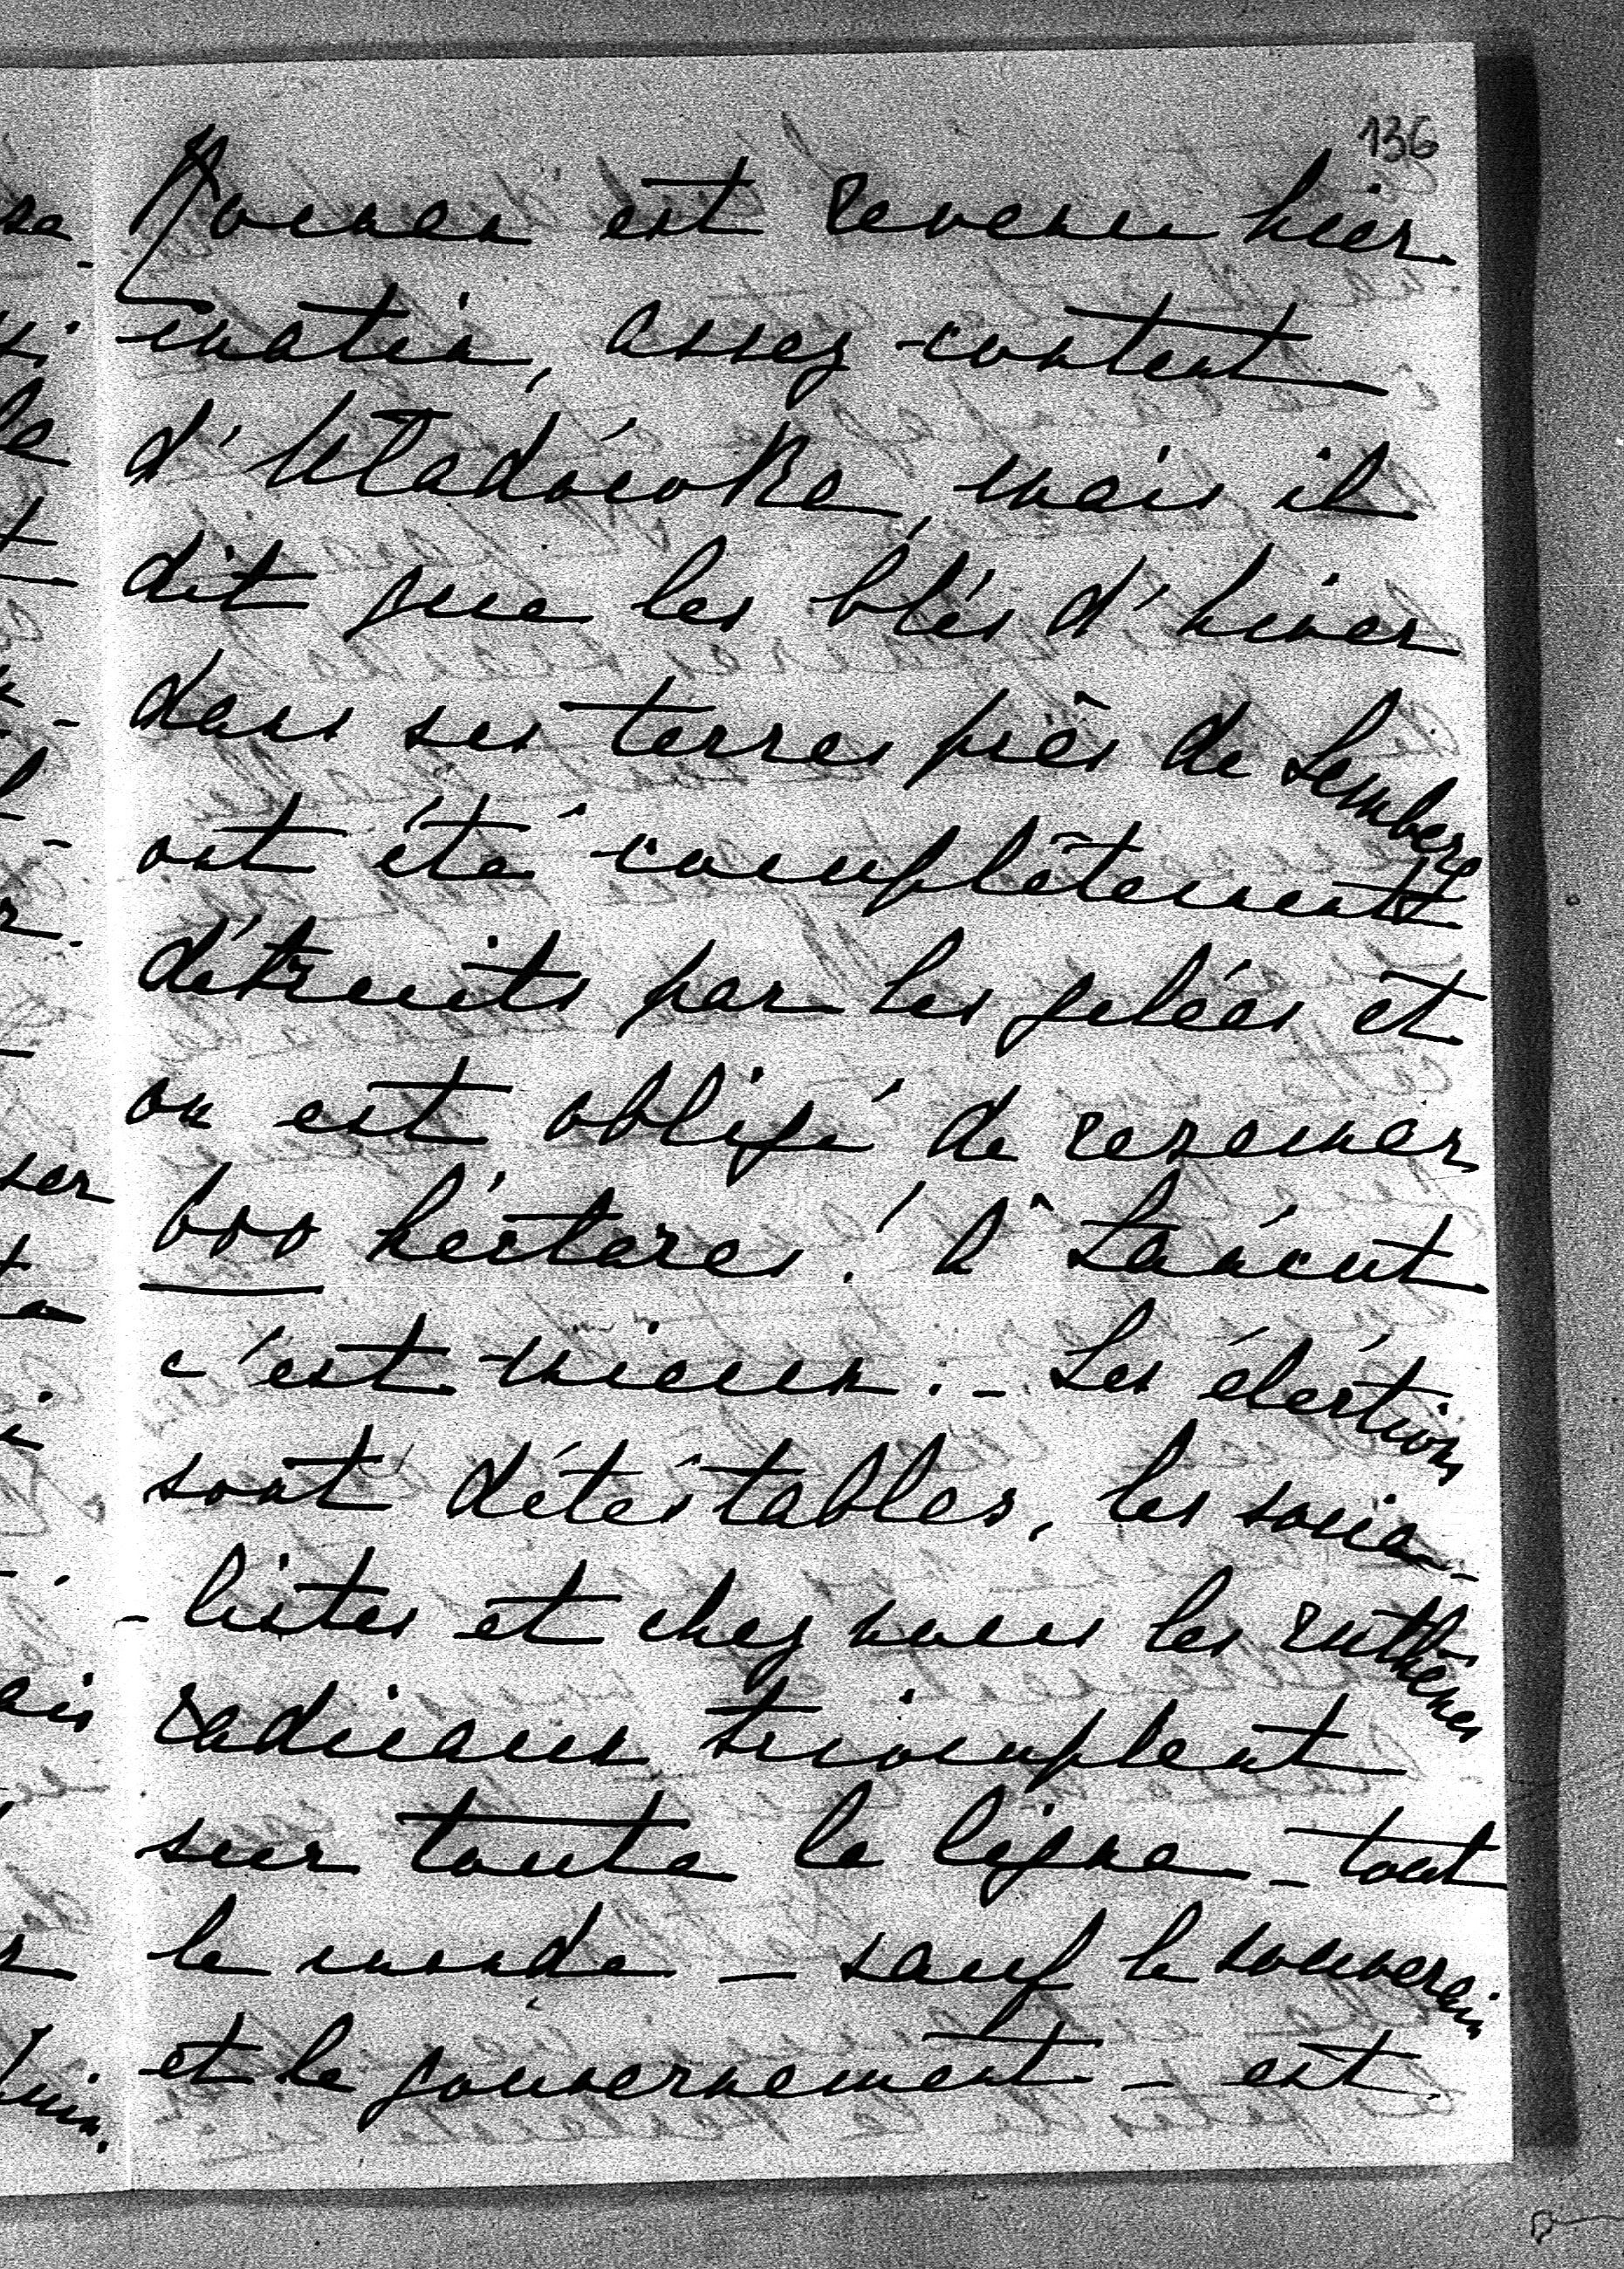 136
Roman est revenu hier
matin, assez content
d'Uladówka, mais il
dit que les blés d'hiver
dans ses terres près de Lemberg
ont été complètement
détruits par les gelées et
on est obligé de resemer
600 héctares! à Łańcut
c'est mieux. – Les élections
sont détéstables, les socia-
-listes et chez nous les ruthènes
radicaux triomphent
sur toute la ligne – tout
le monde – sauf le souverain
et le gouvernement – est